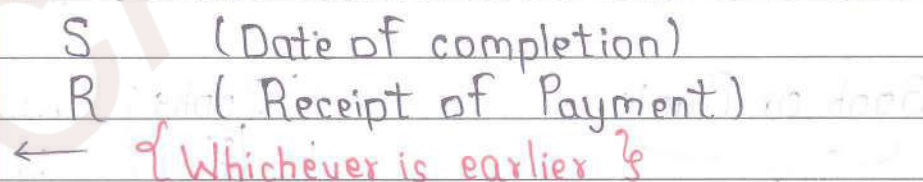 S (Date of completion)
R (Receipt of Payment)
← {Whichever is earlier}